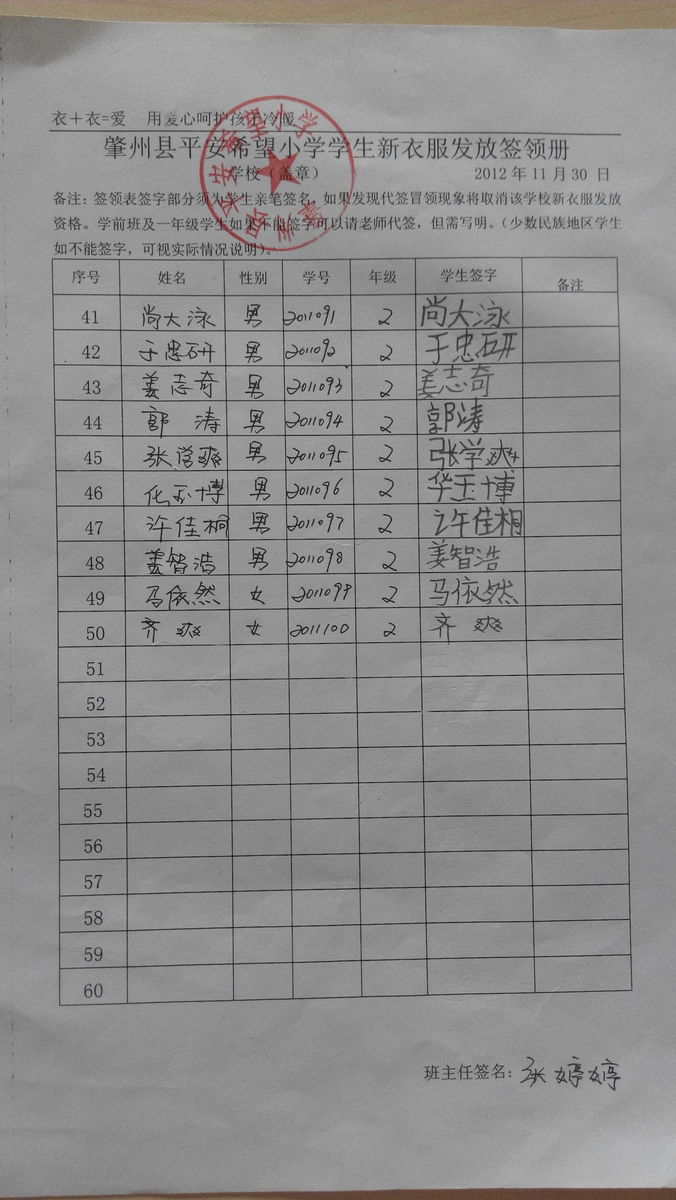 衣+衣=爱 用爱心呵护孩子冷暖
肇州县平安希望小学学生新衣服发放签领册
学校（盖章） 2012 年 11 月 30 日
备注：签领表签字部分须为学生亲笔签名，如果发现代签冒领现象将取消该学校新衣服发放
资格。学前班及一年级学生如果不能签字可以请老师代签，但需写明。（少数民族地区学生
如不能签字，可视实际情况说明）。
序号 姓名 性别 学号 年级 学生签字 备注
41 尚大泳 男 2011091 2 尚大泳
42 于忠研 男 2011092 2 于忠研
43 姜志奇 男 2011093 2 姜志奇
44 郭涛 男 2011094 2 郭涛
45 张学爽 男 2011095 2 张学爽
46 化玉博 男 2011096 2 华玉博
47 许佳桐 男 2011097 2 许佳桐
48 姜智浩 男 2011098 2 姜智浩
49 马依然 女 2011099 2 马依然
50 齐爽 女 2011100 2 齐爽
51
52
53
54
55
56
57
58
59
60
班主任签名：张婷婷